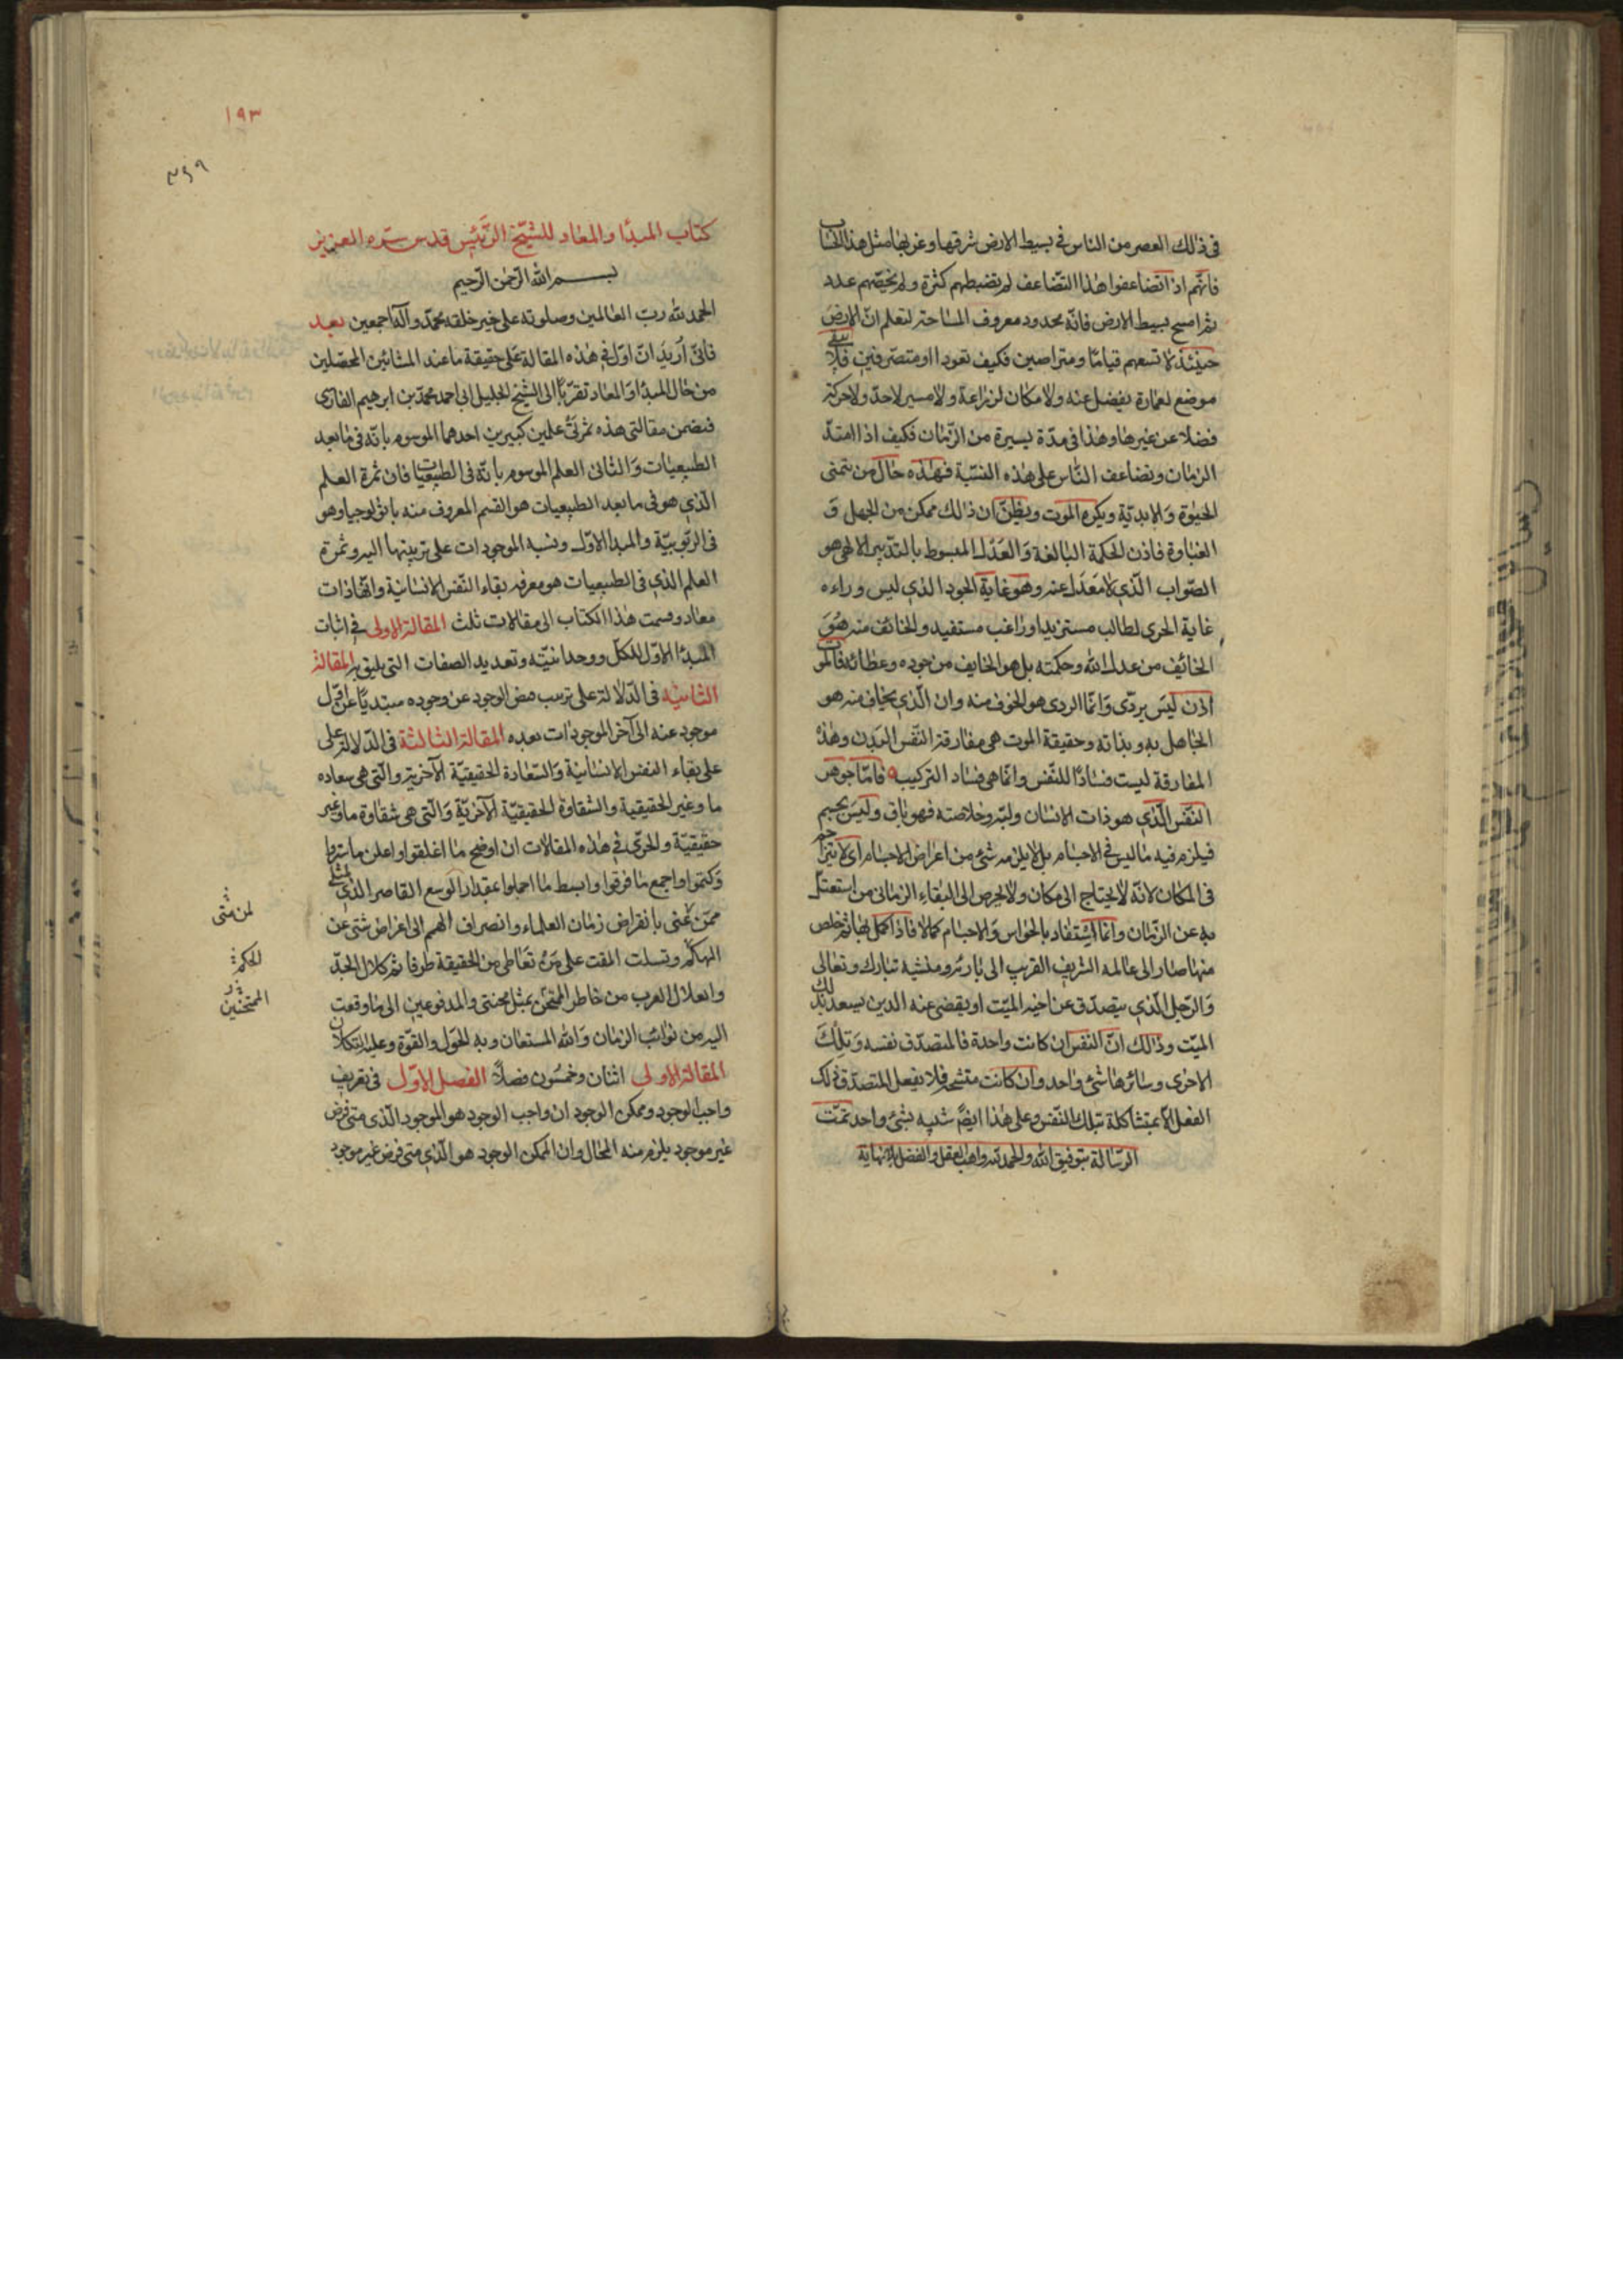 فى ذلك العصر من الناس فى بسيط الارض شرقها وغربها مثل هذا الحساب
فانهم اذا تضاعفوا هذا التضاعف لم تضبطهم كثرة ولم يحصهم عدد
ثم امسح بسيط الارض فانه محدود معروف المساحة لتعلم ان الارض
حينئذ لا تسعهم قياما ومتراصين فكيف قعودا او متصرفين فلا يبقى
موضع لعمارة يفضل عنه ولا مكان لزراعة ولا مسير لاحد ولا حركة
فضلا عن غيرها وهذا فى مدة يسيرة من الزمان فكيف اذا امتد
الزمان وتضاعف الناس على هذه النسبة فهذه حال من يتمنى
الحيوة والابدية ويكره الموت ويظن ان ذلك ممكن من الجهل و
الغباوة فاذن الحكمة البالغة والعدل المبسوط بالتدبير الالهى هو
الصواب الذى لا معدل عنه وهو غاية الجود الذى ليس وراءه
غاية اخرى لطالب مستزيد او راغب مستفيد والخائف منه هو
الخائف من عدل الله وحكمته بل هو الخايف من جوده وعطائه فالموت
اذن ليس بردى وانما الردى هو الخوف منه وان الذى يخاف منه هو
الجاهل به وبذاته وحقيقة الموت هى مفارقة النفس البدن وهذه
المفارقة ليست فسادا للنفس وانما هى فساد التركيب فاما جوهر
النفس الذى هو ذات الانسان ولبه وخلاصته فهو باق وليس بجسم
فيلزم فيه ما ليس فى الاجسام بل لا يلزمه شئ من اعراض الاجسام اى لا يتزاحم
فى المكان لانه لا يحتاج الى مكان ولا يحرص الى البقاء الزمانى من استغنائه
به عن الزمان وانما استفاد بالحواس والاجسام كمالا فاذا كمل بها ثم خلص
منها صار الى عالمه الشريف القريب الى بارئه ومنشيه تبارك وتعالى
والرجل الذى يتصدق عن اخيه الميت او يقضى عنه الدين يسعد بذلك
الميت وذلك ان النفس ان كانت واحدة فالمتصدق نفسه وتلك
الاخرى وسائرها شئ واحد وان كانت متشحة فلا يفعل المتصدق ذلك
الفعل الا بمتشاكلة تلك النفس وعلى هذا ايضً شبيه بشئ واحد تمت
الرسالة بتوفيق الله والحمد لله واهب العقل والفضل بلا نهاية
١٩٣
كتاب المبدا والمعاد للشيخ الرئيس قدس سره العزيز
بسم الله الرحمن الرحيم
الحمد لله رب العالمين وصلوته على خير خلقه محمد وآله اجمعين بعد
فانى اريد ان ادل فى هذه المقالة على حقيقة ما عند المشائين المحصلين
من حال المبدا والمعاد تقربا الى الشيخ الجليل ابى احمد محمد بن ابرهيم الفارسى
فتضمن مقالتى هذه ثمرتى علمين كبيرين احدهما الموسوم بانه فى ما بعد
الطبيعيات والثانى العلم الموسوم بانه فى الطبيعيات فان ثمرة العلم
الذى هو فى ما بعد الطبيعيات هو القسم المعروف منه باثولوجيا وهو
فى الربوبية والمبدا الاول ونسبة الموجودات على ترتيبها اليه وثمرة
العلم الذى فى الطبيعيات هو معرفه بقاء النفس الانسانية وانها ذات
معاد وقسمت هذا الكتاب الى مقالات ثلث المقالة الاولى فى اثبات
المبدا الاول للكل ووحدانيته وتعديد الصفات التى يليق به المقالة
الثانية فى الدلالة على ترتيب فيض الوجود عن وجوده مبتديا عن اول
موجود عنه الى آخر الموجودات بعده المقالة الثالثة فى الدلالة على
على بقاء النفس الانسانية والسعادة الحقيقية الآخرية والتى هى سعاده
ما وغير الحقيقية والشقاوة الحقيقية الآخرية والتى هى شقاوة ما وغير
حقيقية والحرى فى هذه المقالات ان اوضح ما اغلقوا واعلن ما ستروا
وكتموا واجمع ما فرقوا وابسط ما اجملوا بمقدار الوسع القاصر الذى لمثلى
ممن عنى بانقراض زمان العلماء وانصراف الهمم الى اغراض شتى عن
الحكم وتسلت المقت على من تعاطى من الحقيقة طرفا ثم كلال الحد
وانفلال الغرب من خاطر الممتحن بمثل محنتى والمدفوعين الى ما وقعت
اليه من نوائب الزمان والله المستعان وبه الحول والقوة وعليه التكلان
المقالة الاولى اثنان وخمسون فصلا الفصل الاول فى تعريف
واجب الوجود وممكن الوجود ان واجب الوجود هو الموجود الذى متى فرض
غير موجود يلزم منه المحال وان الممكن الوجود هو الذى متى فرض غير موجود
الحكمة
الممتحنين